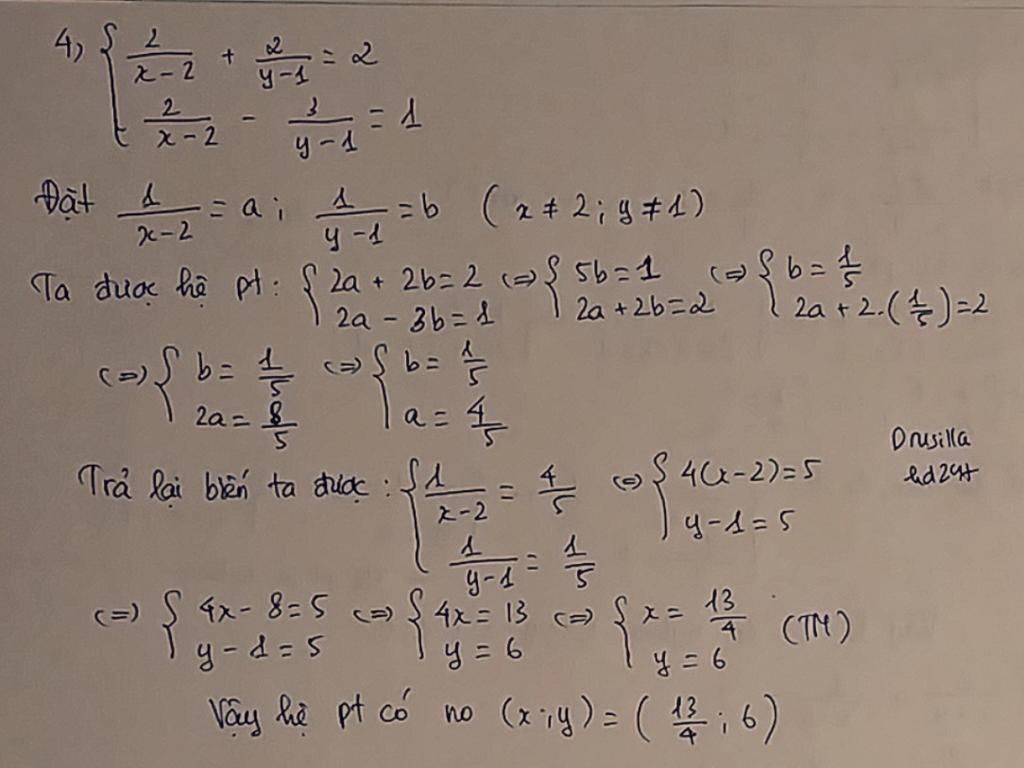 4, { 2/(x-2) + 2/(y-1) = 2
2/(x-2) - 3/(y-1) = 1
Đặt 1/(x-2) = a ; 1/(y-1) = b ( x ≠ 2 ; y ≠ 1 )
Ta được hệ pt : { 2a + 2b = 2 ; 2a - 3b = 1 (=) { 5b = 1 ; 2a + 2b = 2 (=) { b = 1/5 ; 2a + 2.(1/5) = 2
(=) { b = 1/5 ; 2a = 8/5 (=) { b = 1/5 ; a = 4/5
Drusilla
Trả lại biến ta được : { 1/(x-2) = 4/5 ; 1/(y-1) = 1/5 (=) { 4(x-2) = 5 ; y-1 = 5
(=) { 4x - 8 = 5 ; y - 1 = 5 (=) { 4x = 13 ; y = 6 (=) { x = 13/4 ; y = 6 (TM)
Vậy hệ pt có no (x ; y) = ( 13/4 ; 6 )